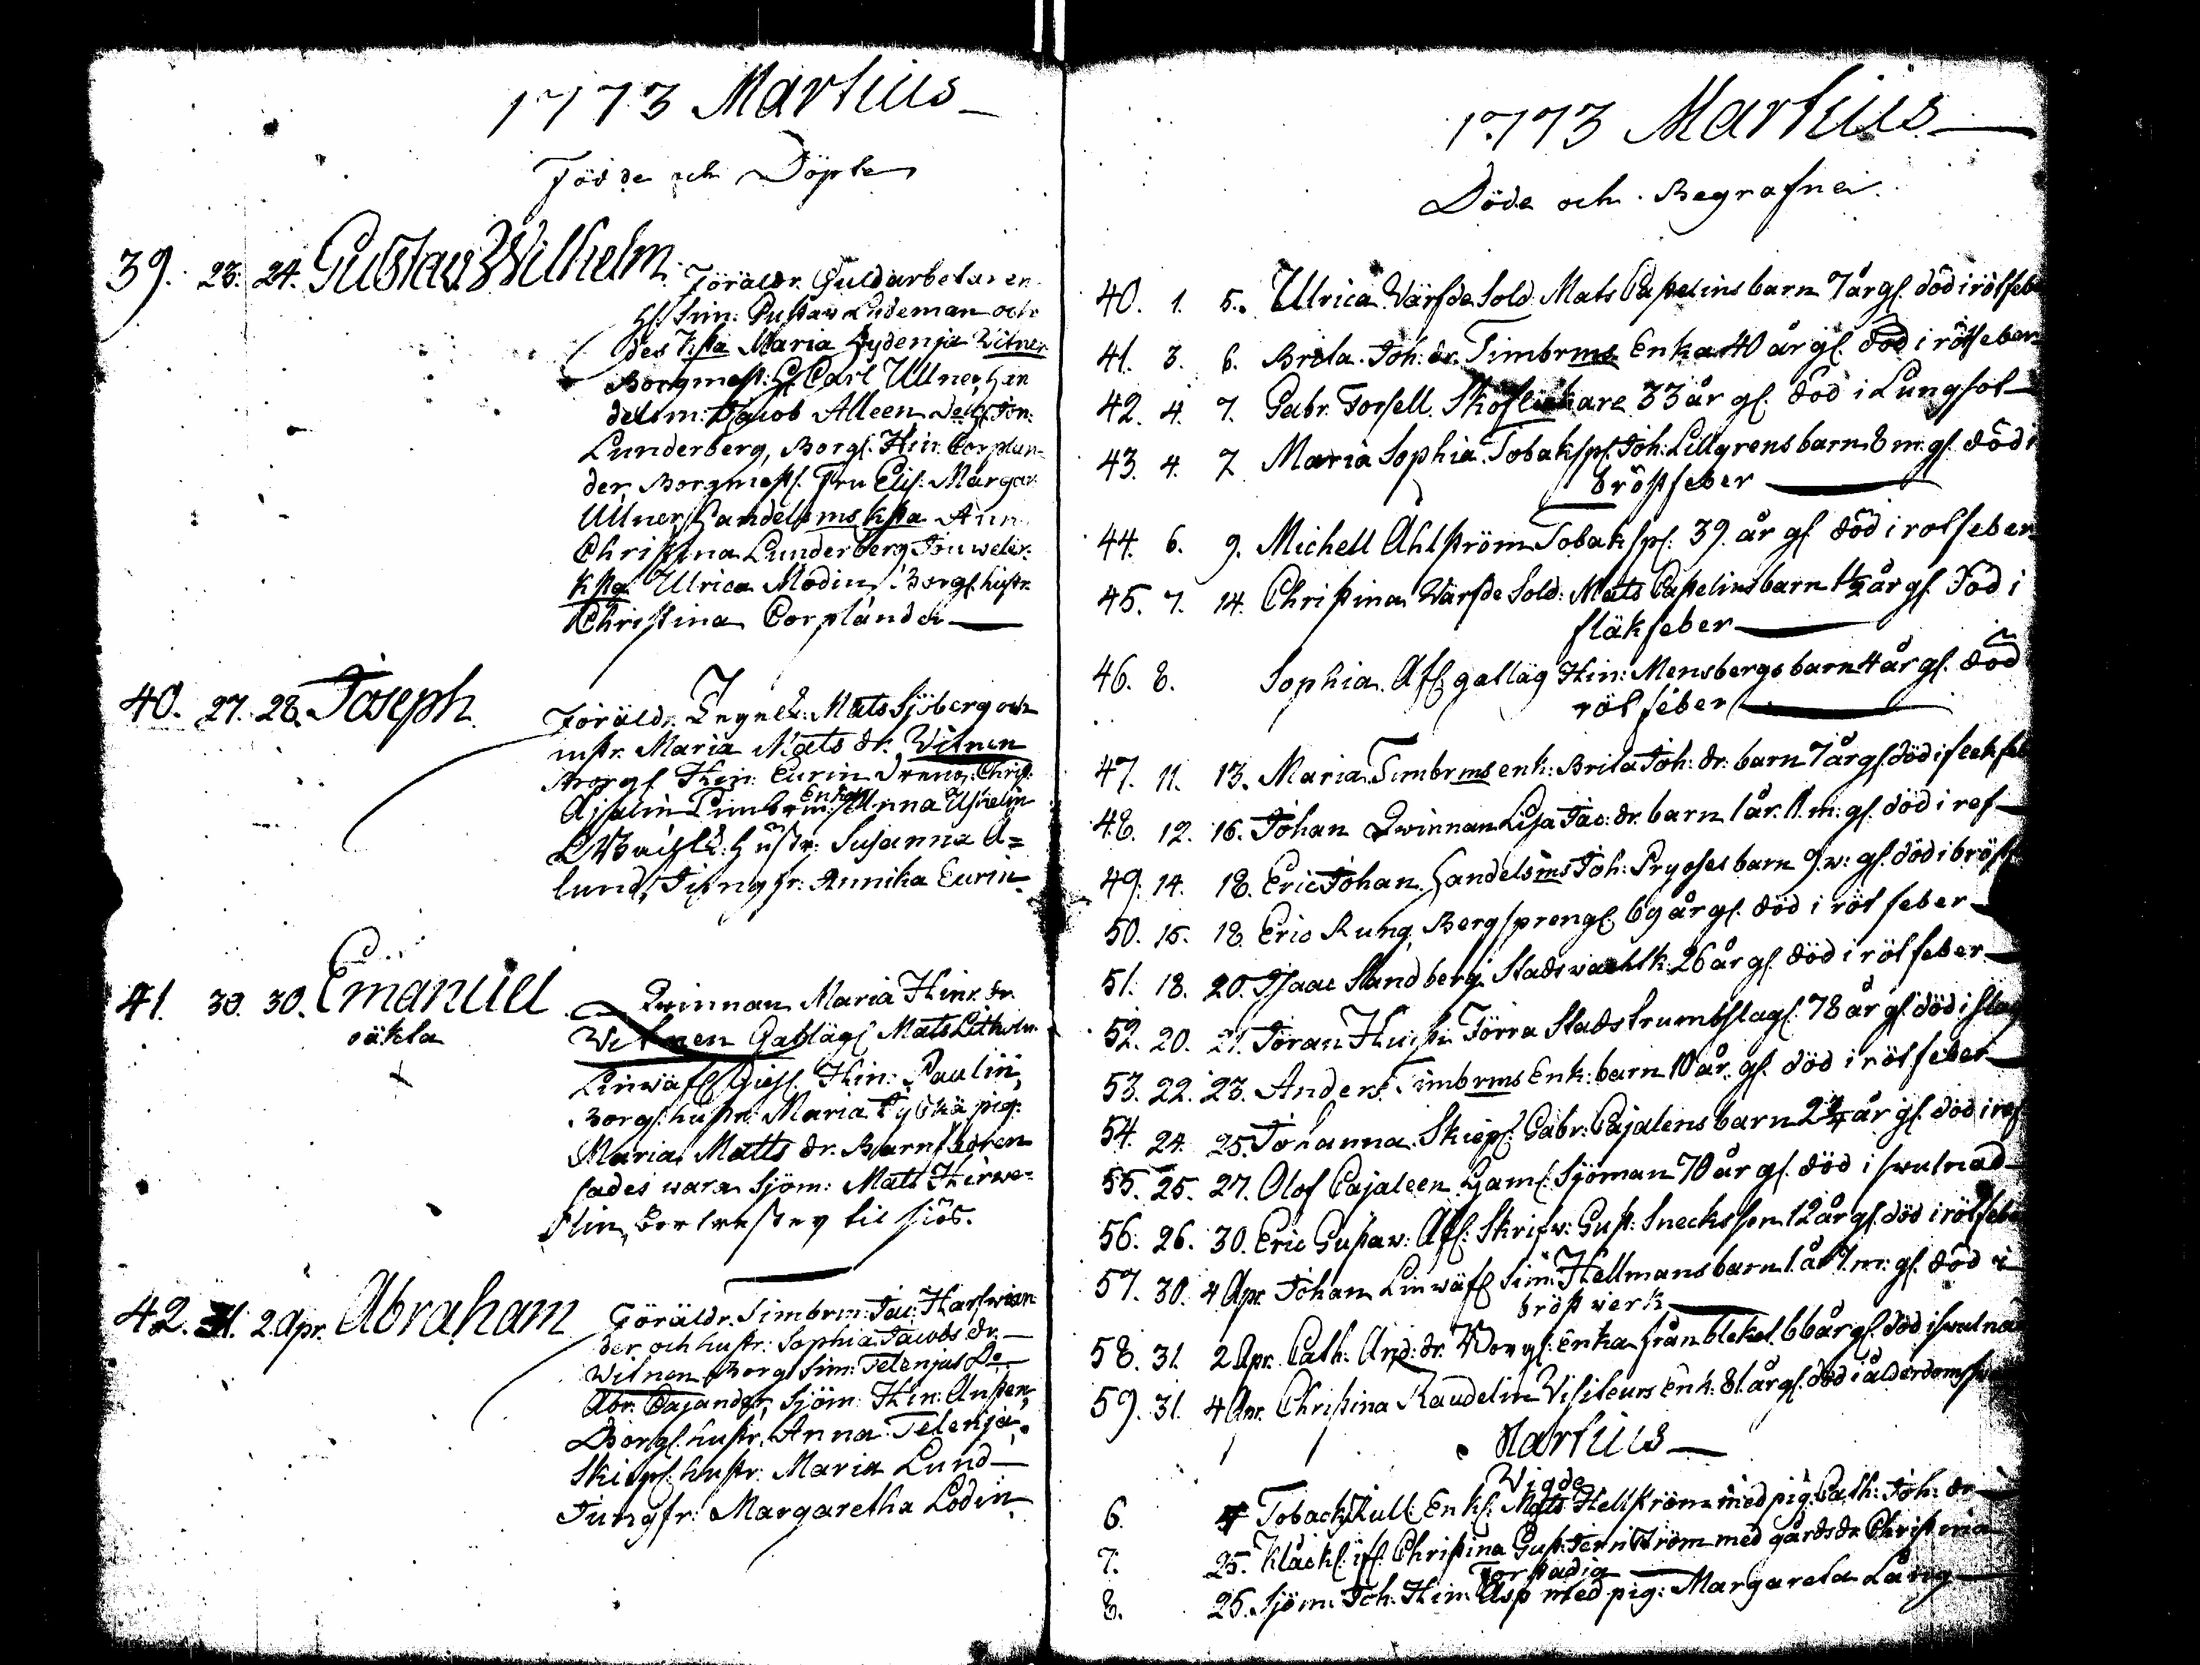 1773 Martius
Födde och Döpte
39. 23. 24. Gustav Wilhelm. Föräldr. Guldarbetaren
H: Sim: Gustav Lydeman och
des Hsta Maria Lydenja Witnen
Borgmest: H: Carl Ullner, Han
delsm: Jacob Alleen
Lunderberg, Borgs. Hin: Corplan-
der, Borgmest. Fru Elis: Margar.
Ullner, Handelsms hsta Ann.
Christina Lunderberg Jouveler.
hsta Ulrica Modin, Borgs. hustr.
Christina Corplander
40. 27. 28. Joseph
Föräldr. Mats Sjöberg och
Maria Mats dr. Witnen
Borgs. Hin: Eurin Dreng: Christ:
Timberm: Enka Anna
Hustr: Susanna A=
lund, Jungfr. Annika Eurin
41. 30. 30. Emanuel Qvinnan Maria Hinr. dr.
oäkta Witnen Mats
Linwäfv Hin: Paulin,
Borgs. hustr: Maria Tyskä pig:
Maria Matts dr. Barnfadren
sades wara Sjöm: Mats
til siös.
42. 31. 2. Apr. Abraham Föräldr. Timbrm: Jac: Harfwan
der och hustr: Sophia Jacobs dr.
Witnen Borgs Sim: Telenius Do
Abr. Pajander, Sjöm: Hin:
Borgs. hustr. Anna Telenja,
Skieps. hustr. Maria Lund
Jungfr: Margaretha Lodin
1773 Martius
Döde och Begrafne
40. 1. 5. Ulrica Värfde Sold. Mats Capelins barn 7 år gl. död i rötfeber
41. 3. 6. Brita Joh: dr. Timbrms Enka 40 år gl. död i rötfeber
42. 4. 7. Gabr. Forsell. Skoflickare 33 år gl. död i Lungsot
43. 4. 7 Maria Sophia Tobaksp. Joh: Lillgrens barn 8 m. gl. död i
bröstfeber
44. 6. 9. Michell Ahlström Tobaksp. 39. år gl död i rötfeber
45. 7. 14. Christina Värfde Sold: Mats Capelins barn 1½ år gl. död i
fläkfeber
46. 8. Sophia. Hin: Mensbergs barn 4 år gl. död i
rötfeber
47. 11. 13. Maria Timbrms enk: Brita Joh: dr. barn 7 år gl. död i
48. 12. 16. Johan Qvinnan Lisa Jac: dr. barn 1 år. 11. m: gl. död i
49. 14. 18. Eric Johan. Handelsms Joh: barn 9. w: gl. död i bröst
50. 15. 18. Eric Rung, Bergspreng 69 år gl. död i rötfeber
51. 18. 20. Isaac Sandberg Stadswachtk. 26 år gl. död i rötfeber
52. 20. 21. Jöran Förra Stadstrumbslag. 78 år gl. död i slag
53. 22. 23. Anders. Timbrms Enk: barn 10 år. gl. död i rötfeber
54. 24. 25. Johanna. Skiep: Gabr: Pajalens barn 2¾ år gl. död i
55. 25. 27. Olof Pajaleen Gaml. Sjöman 70 år gl. död i swulnad
56. 26. 30. Eric Gustaw: Afs: Skrifw: Gust: Snecks son 12 år gl. död i rötfeber
57. 30. 4 Apr Johan Linwäfv Sim: Hellmans barn 1. år 7. m: gl. död i
bröstwerk
58. 31. 2 Apr. Cath: And: dr. Borgs: Enka från 66 år gl. död i swulnad
59. 31. 4 Apr. Christina Raudelin Visiteurs Enk: 81. år gl. död i ålderdoms
Martius
Wigde
6. 4 Tobacks Enkl: Mats Hellström med pig: Cath: Joh: dr
7. 25. Christina Gust: Ternström med gårds dr Christina
8. 25. Sjöm: Joh: Hin: Asp med pig: Margareta Lång